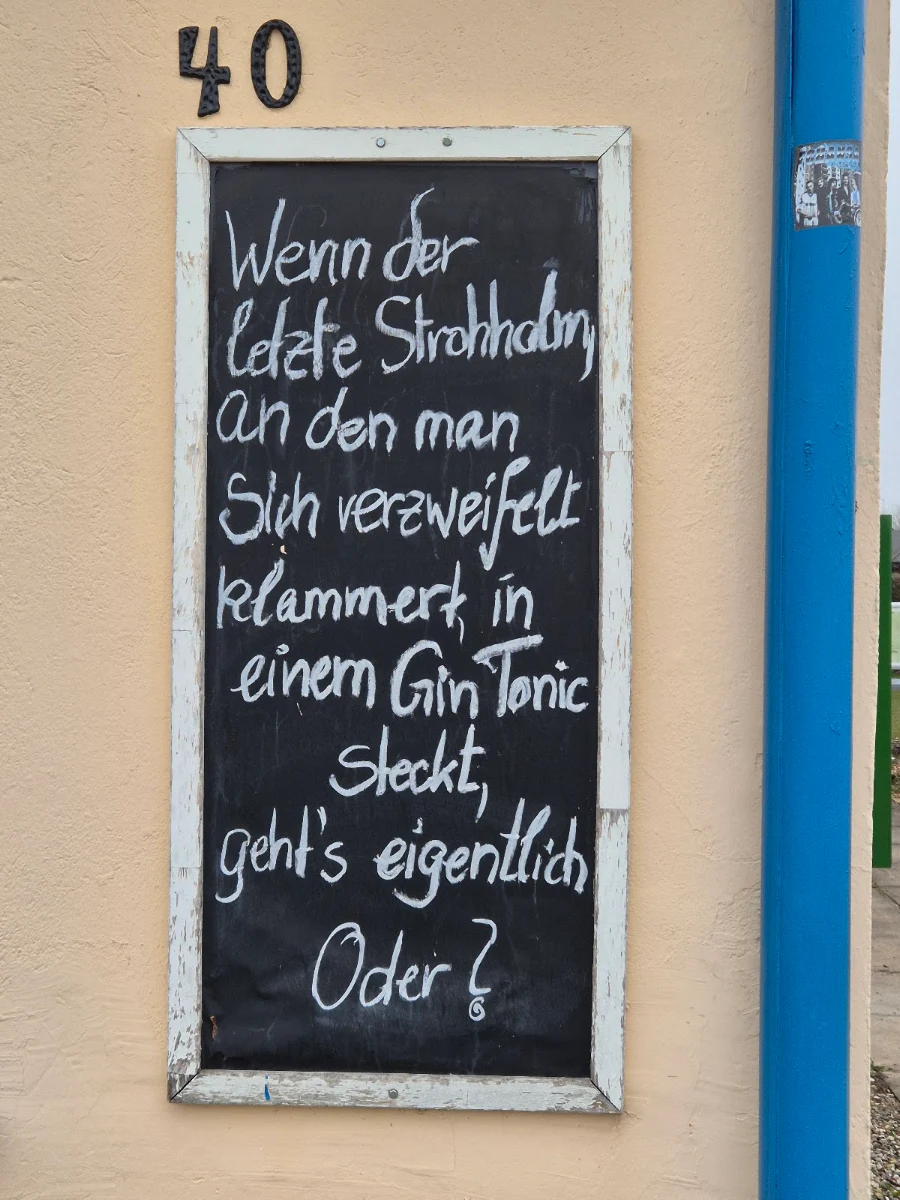 40
Wenn der
letzte Strohhalm,
an den man
Sich verzweifelt
klammert, in
einem Gin Tonic
steckt,
geht's eigentlich
Oder?